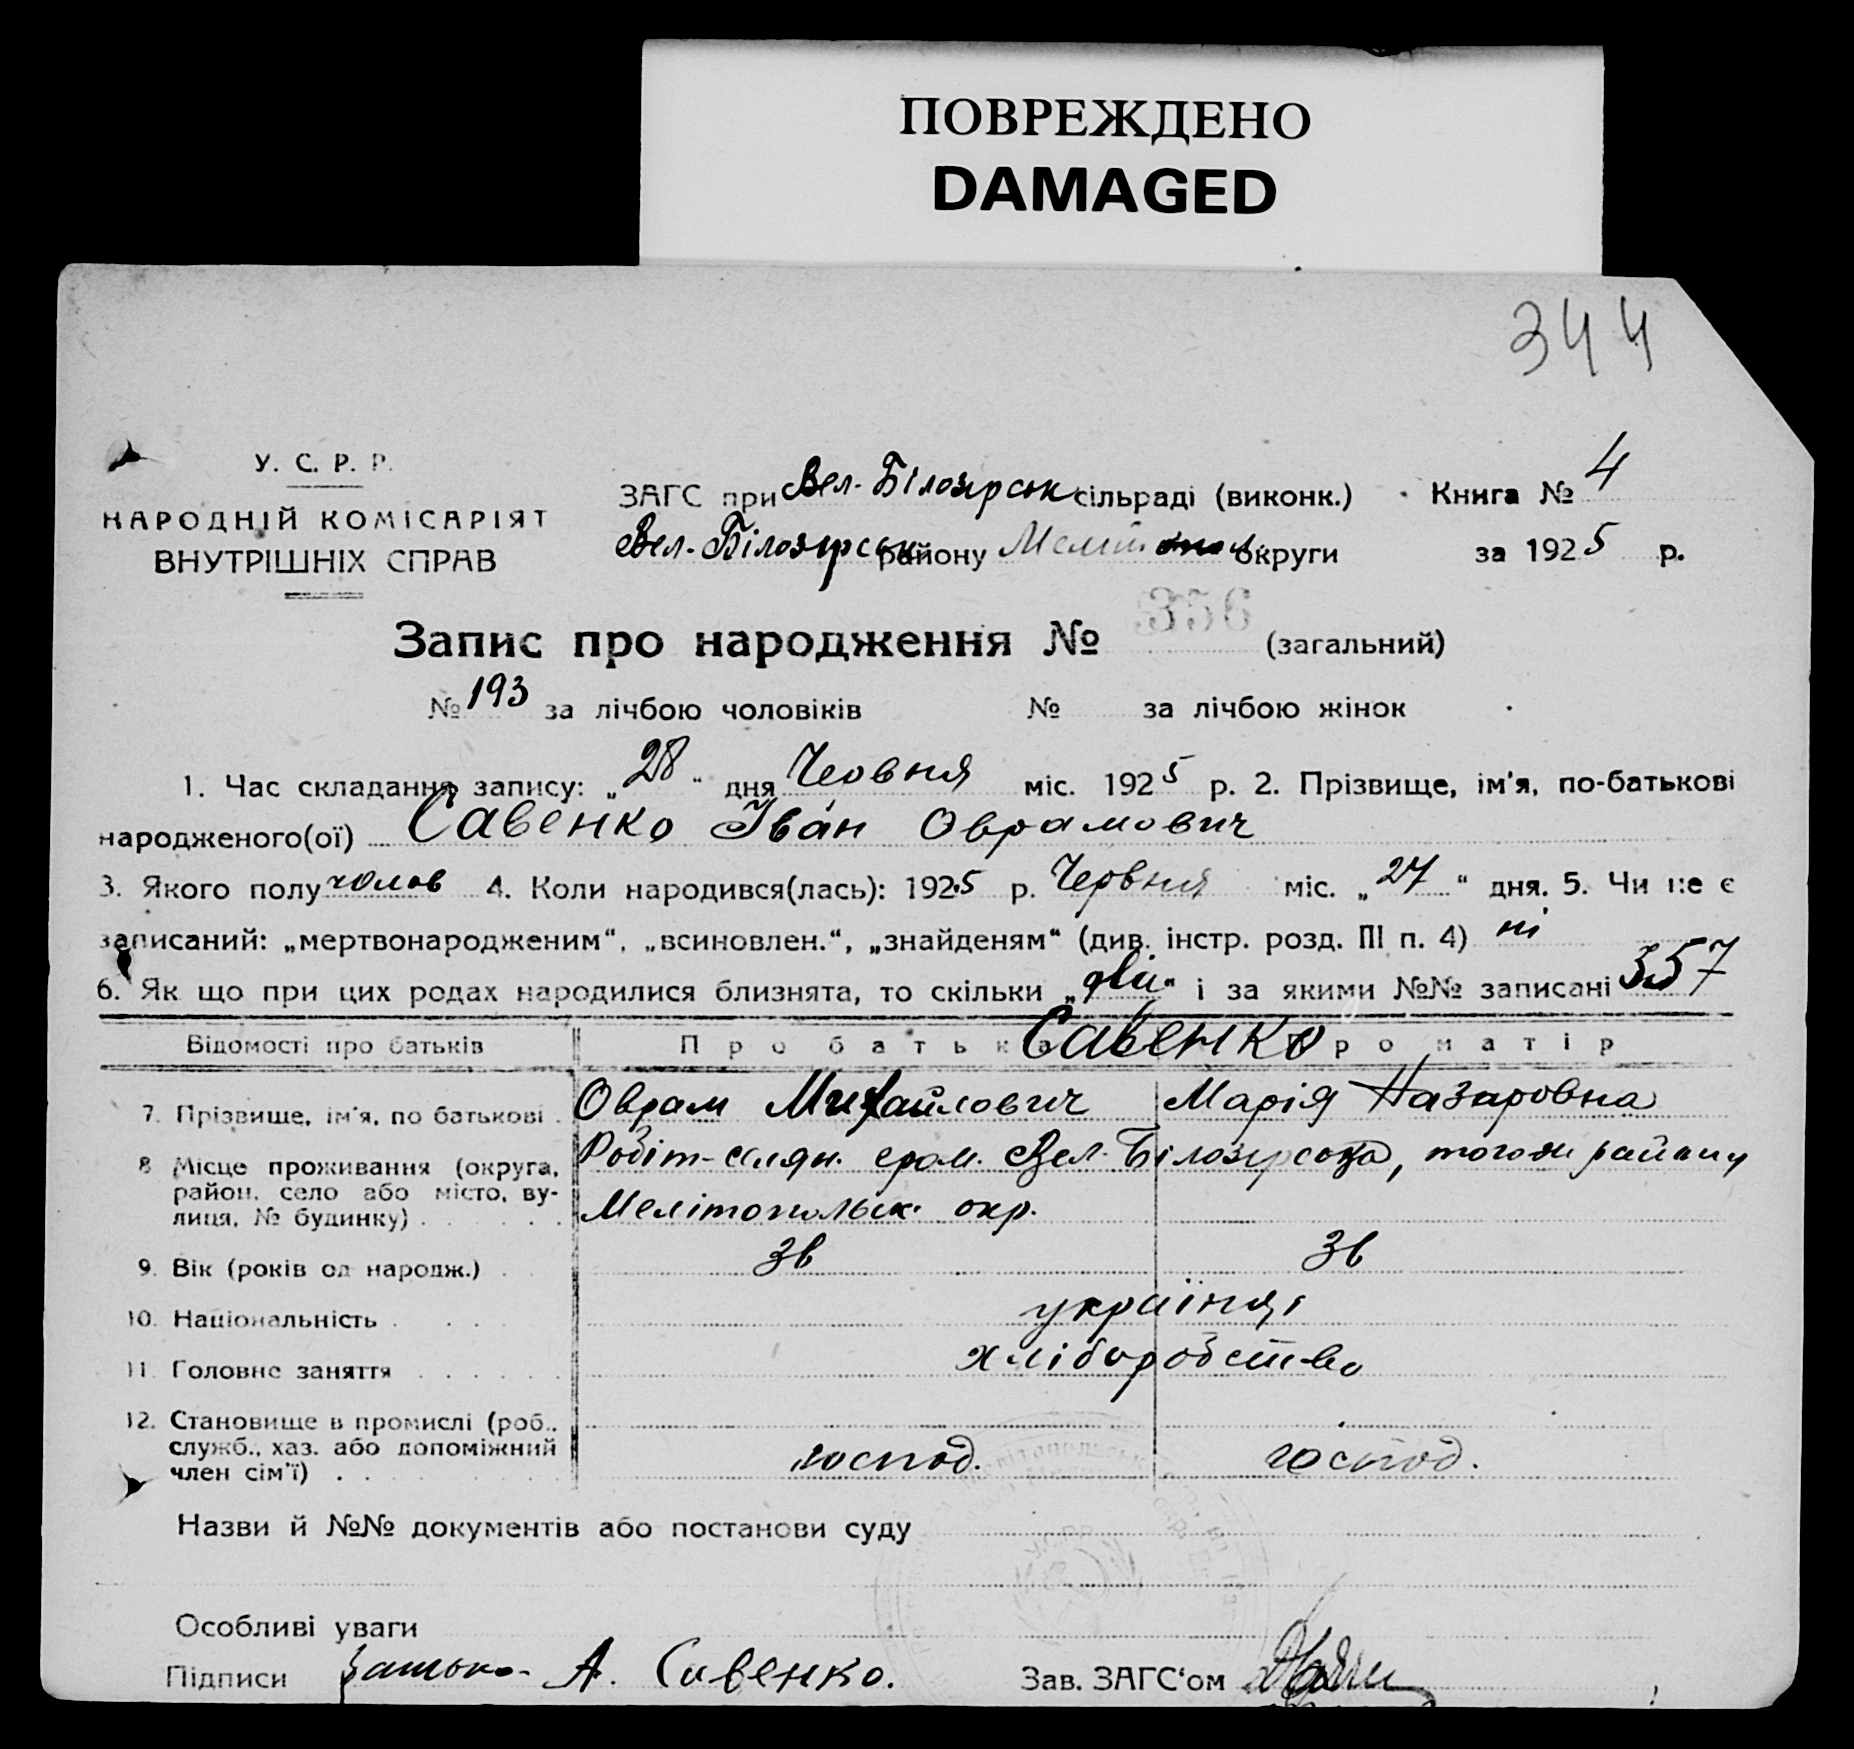 ПОВРЕЖДЕНО
DAMAGED
344
У. С. Р. Р.
НАРОДНІЙ КОМІСАРІЯТ
ВНУТРІШНІХ СПРАВ
ЗАГС при Вел-Білозірськ сільраді (виконк.) Книга № 4
Вел-Білозірськ району Меліт округи за 1925 р.
Запис про народження № 356 (загальний)
№ 193 за лічбою чоловіків № за лічбою жінок
1. Час складання запису: „28" дня Червня міс. 1925 р. 2. Прізвище, ім'я, по-батькові
народженого(ої) Савенко Іван Оврамович
3. Якого полу чолов 4. Коли народився(лась): 1925 р. Червня міс. „27" дня. 5. Чи не є
записаний: „мертвонародженим", „всиновлен.", „знайденям" (див. інстр. розд. III п. 4) ні
6. Як що при цих родах народилися близнята, то скільки „двій" і за якими №№ записані 357
Відомості про батьків Про батька Савенко Про матір
7. Прізвище, ім'я, по батькові Оврам Михайлович Марія Назаровна
8 Місце проживання (округа, район, село або місто, вулиця, № будинку) Робіт-селян. гром. Вел-Білозірсова, тогож району
Мелітопольск. окр.
9. Вік (років од народж.) 36 36
10. Національність україн
11. Головне заняття хліборобство
12. Становище в промислі (роб., служб., хаз. або допоміжний член сім'ї) господ. господ.
Назви й №№ документів або постанови суду
Особливі уваги
Підписи батько- А. Савенко. Зав. ЗАГС'ом